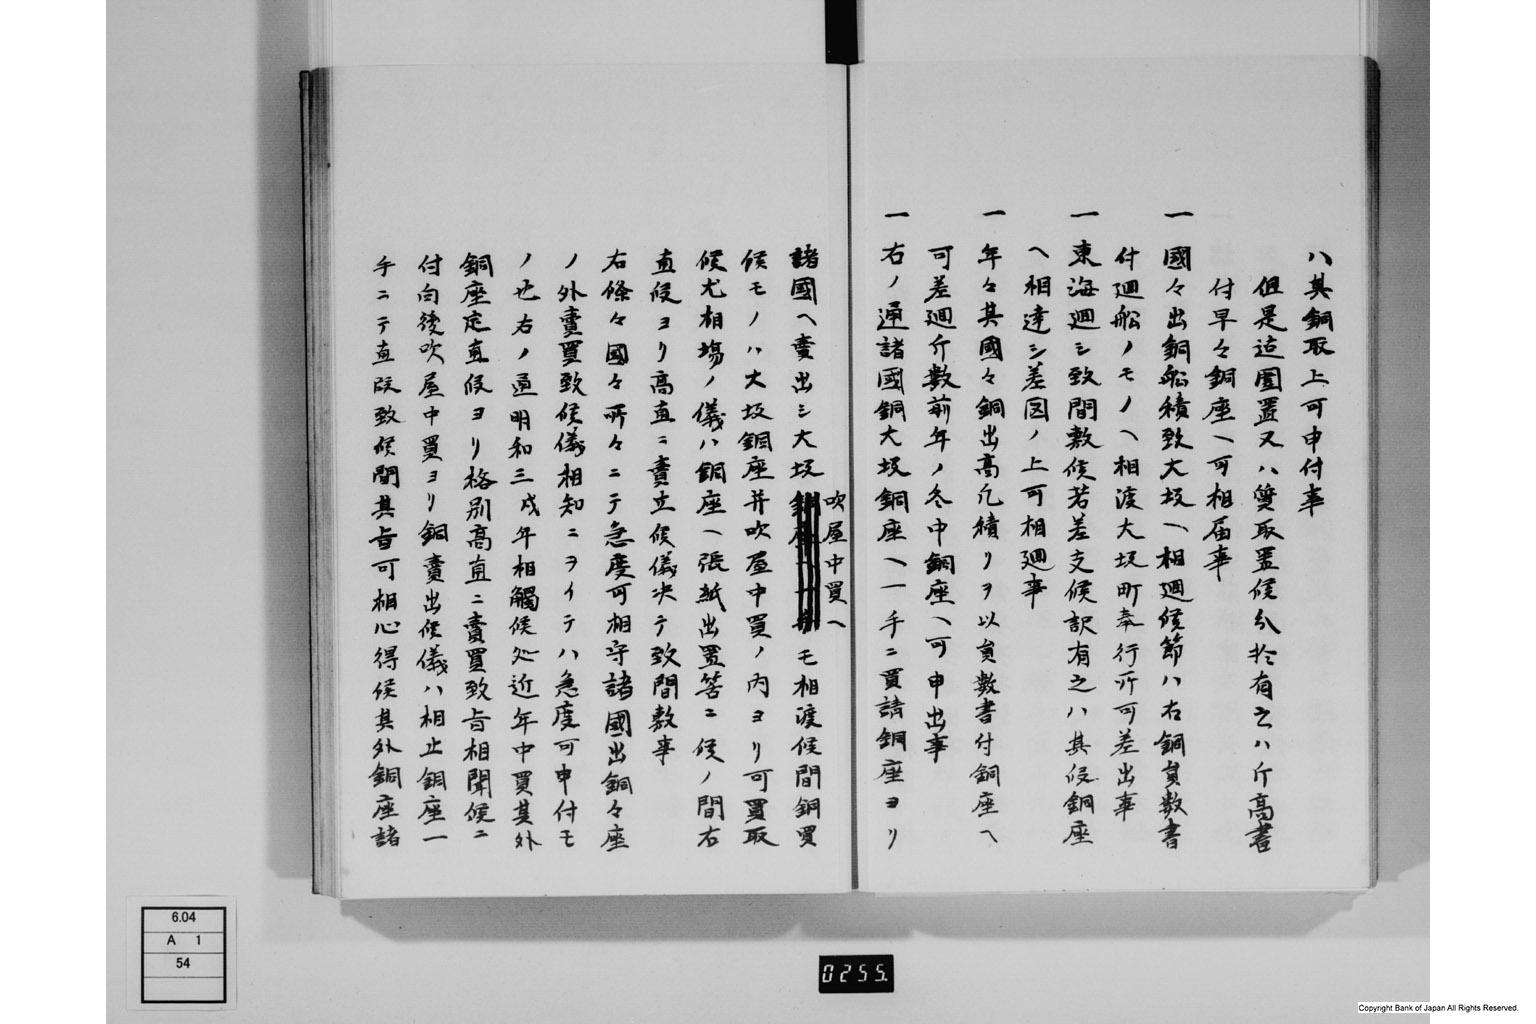 ハ其銅取上可申付事
但是迄圍置又ハ質取置候分於有之ハ斤高書
付早々銅座ヘ可相届事
一 國々出銅船積致大坂ヘ相廻候節ハ右銅員数書
付廻船ノモノヘ相渡大坂町奉行所可差出事
一 東海廻シ致間敷候若差支候訳有之ハ其段銅座
ヘ相達シ差図ノ上可相廻事
一 年々其國々銅出高凡積リヲ以員数書付銅座ヘ
可差廻斤数前年ノ冬中銅座ヘ可申出事
一 右ノ通諸國銅大坂銅座ヘ一手ニ買請銅座ヨリ
諸國ヘ賣出シ大坂吹屋中買ヘモ相渡候間銅買
候モノハ大坂銅座并吹屋中買ノ内ヨリ可買取
候尤相場ノ儀ハ銅座ヘ張紙出置筈ニ候ノ間右
直段ヨリ高直ニ賣立候儀决テ致間敷事
右條々國々所々ニテ急度可相守諸國出銅々座
ノ外賣買致候儀相知ニヲイテハ急度可申付モ
ノ也右ノ通明和三戌年相觸候処近年中買其外
銅座定直段ヨリ格別高直ニ賣買致旨相聞候ニ
付向後吹屋中買ヨリ銅賣出候儀ハ相止銅座一
手ニテ直段致候間其旨可相心得候其外銅座諸
6.04
A 1
54
0255.
Copyright Bank of Japan All Rights Reserved.